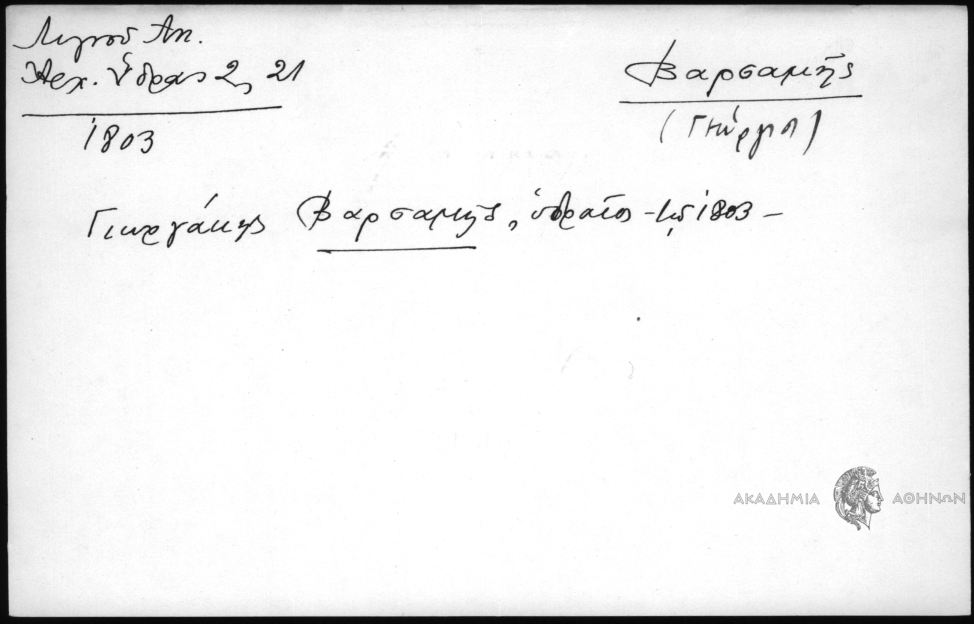 Λιγνοῦ Ἀν.
Ἀρχ. Ὕδρας 2, 21
1803
Βαρσαμῆς
(Γιώργης)
Γιωργάκης Βαρσαμῆς, ὑδραῖος 1803 –
ΑΚΑΔΗΜΙΑ ΑΘΗΝΩΝ